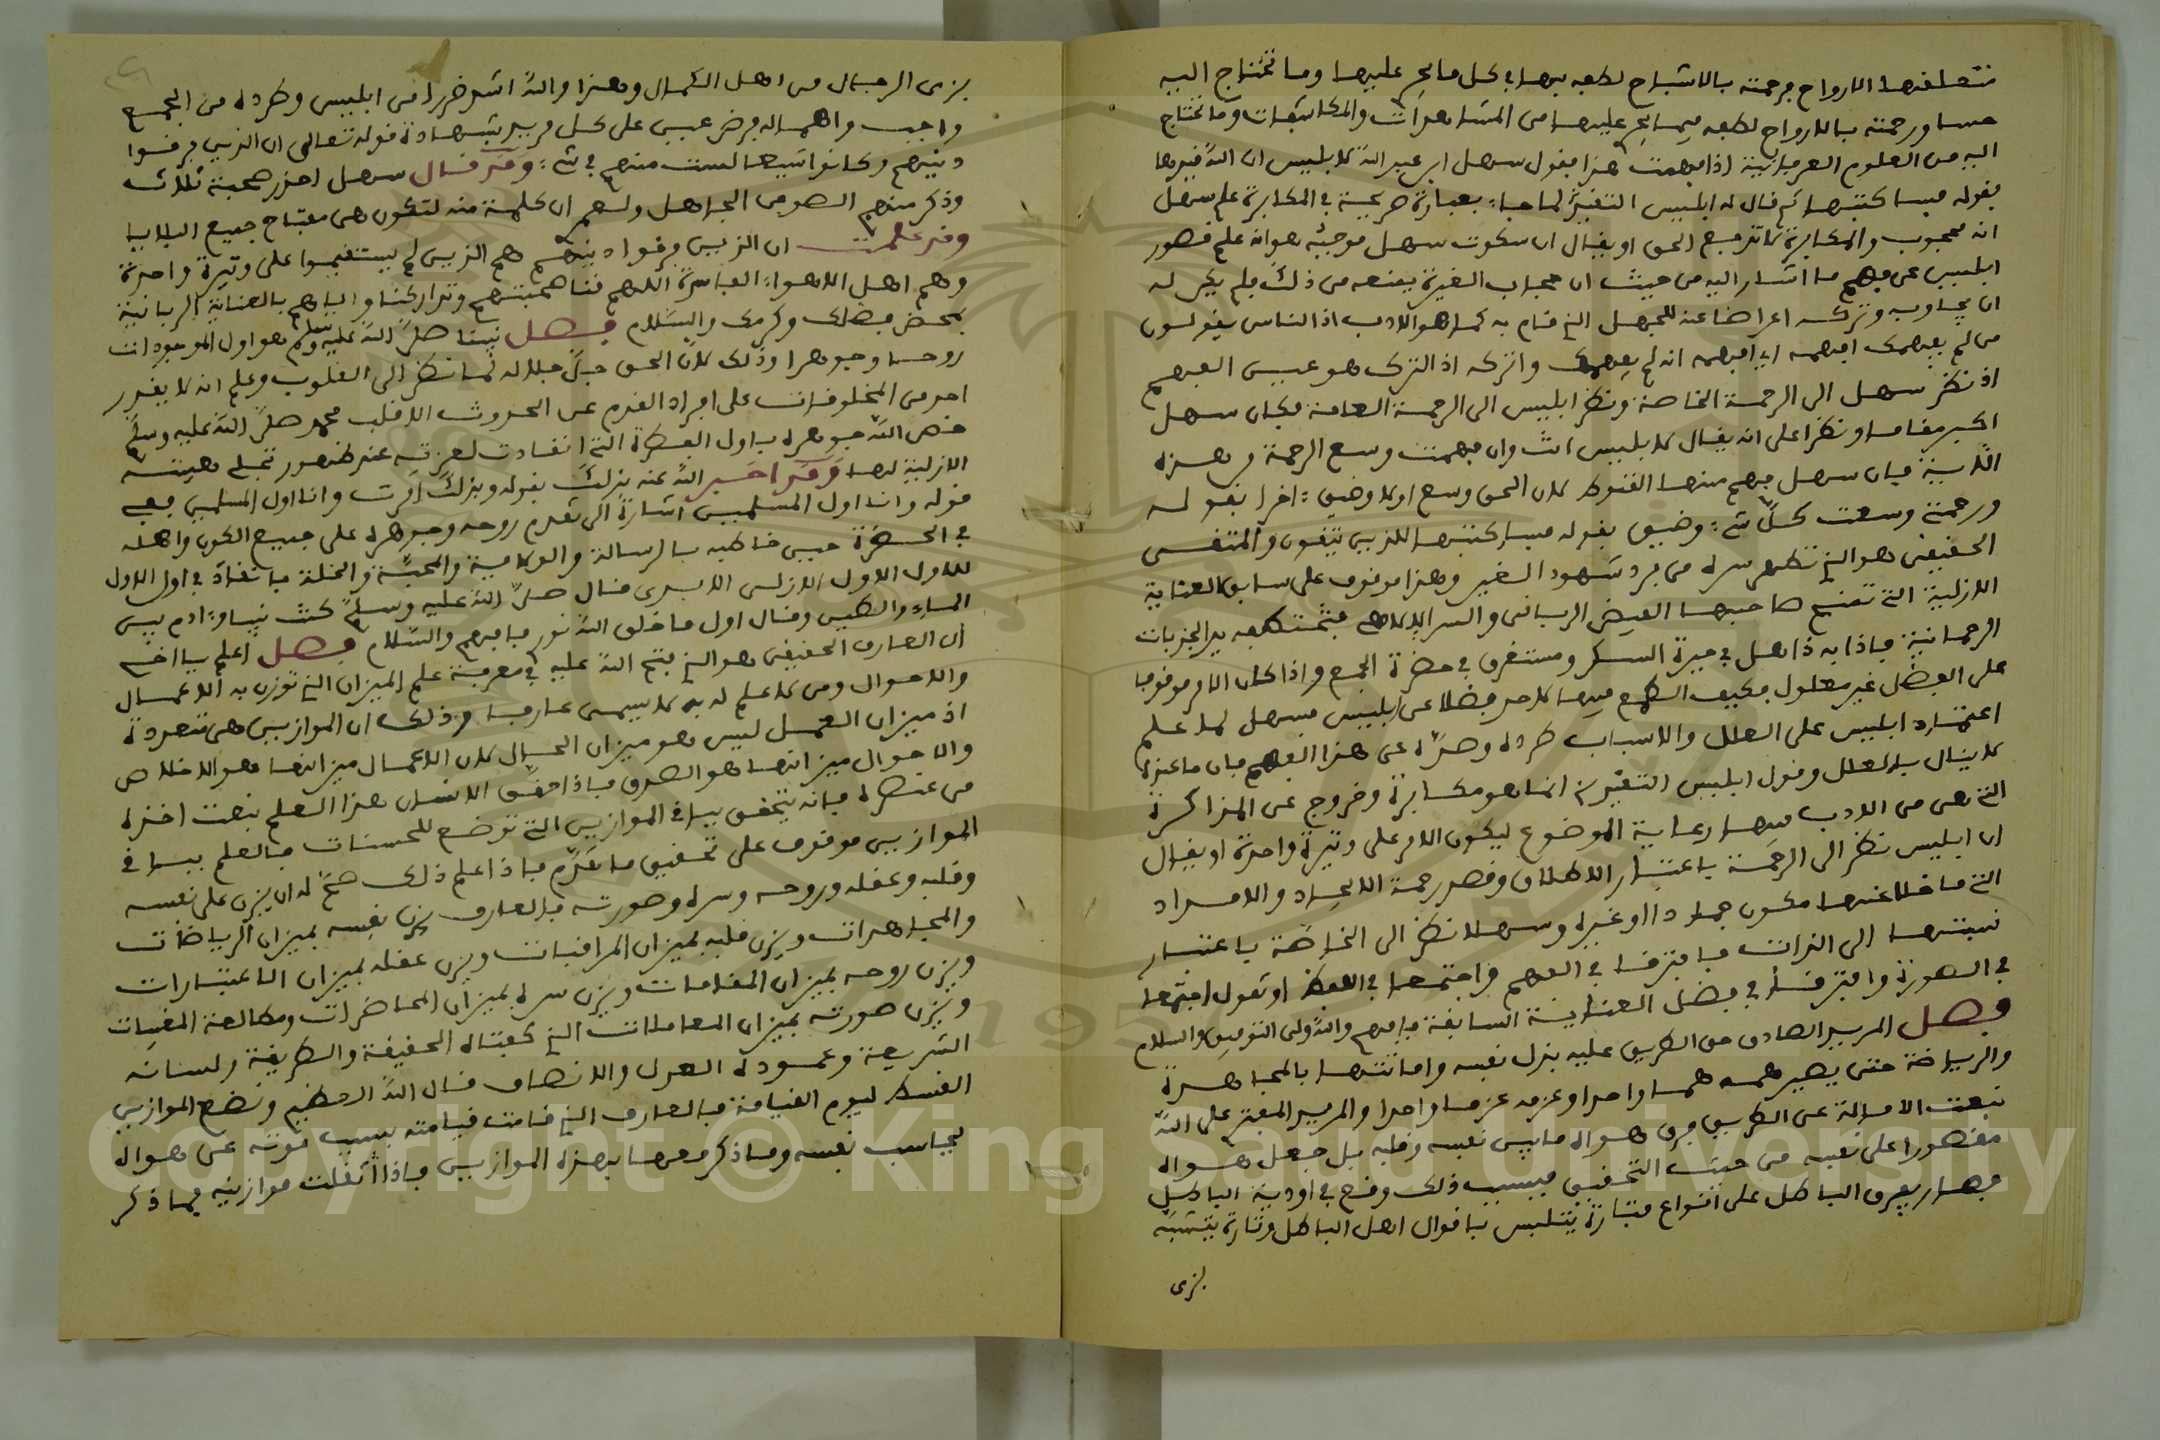 تتعلقها الارواح فرحمته بالاشباح لطفه بها في كل ما يجري عليها وما تحتاج اليه
حسا ورحمته بالارواح لطفه فيما يجري عليها من المشاهدات والمكاشفات وما تحتاج
اليه من العلوم العرفانية اذا فهمت هذا فقول سهل ابن عبد الله لابليس ان الله قيدها
بقوله فسأكتبها ثم قال له ابليس التقييد لصاحبه بعبارة صريحة في المكابرة علم سهل
انه محجوب والمكابرة لا ترجع للحق او يقال ان سكوت سهل موجبه هو انه علم قصور
ابليس عن فهم ما اشار اليه من حيث ان حجاب الغيرة يمنعه من ذلك فلم يكن له
ان يجاوبه وتركه اعراضا عنه للجهل الذي قام به كما هو الادب اذ الناس يقولون
من لم يفهمك افهمه اي افهمه انه لم يفهمك واتركه اذ الترك هو عين الفهم
اذ نظر سهل الى الرحمة الخاصة ونظر ابليس الى الرحمة العامة فكان سهل
اكبر مقاما ونظرا على انه يقال لابليس انت وان فهمت وسع الرحمة من هذه
الاية فان سهل فهم منها القنوط لان الحق وسع اولا وضيق اخرا بقوله
ورحمتي وسعت كل شيء وضيق بقوله فسأكتبها للذين يتقون والمتقي
الحقيقي هو الذي تطهر سره من درد شهود الغير وهذا موقوف على سابق العناية
الازلية التي تمنح صاحبها الفيض الرباني والسر الالاهي فتختطفه يد الجذبات
الرحمانية فاذا به ذاهل في حيرة السكر ومستغرق في حضرة الجمع واذا كان الامر موقوفا
على الفضل غير معلول فكيف الطمع فيها لاحد فضلا عن ابليس فسهل لما علم
اعتماد ابليس على العلل والاسباب طرده وصده عن هذا الفهم فان ما عنده
لا ينال بالعلل وقول ابليس التقييد انما هو مكابرة وخروج عن المذاكرة
التي هي من الادب فيها رعاية الموضوع ليكون الامر على وتيرة واحدة او يقال
ان ابليس نظر الى الرحمة باعتبار الاطلاق وقصد رحمة الايجاد والامداد
التي ما خلا عنها مكون جمادا او غيره وسهلا نظر الى الخاصة باعتبار
نسبتها الى الذات فافترقا في الفهم واجتمعا في اللفظ او تقول اجتمعا
في الصورة وافترقا في فضل العناية السابقة فافهم والله ولي التوفيق والسلام
فصل المريد الصادق من الطريق عليه بذل نفسه واماتتها بالمجاهدة
والرياضة حتى يصير همه هما واحدا وعزمه عزما واحدا والمريد المفتري على الله
بنعت الامالة عن الطريق فرق هواه ما بين نفسه وقلبه بل جعل هواه
مقصورا على نفسه من حيث التحقيق فبسبب ذلك وقع في اودية الباطل
فصار يفرق الباطل على انواع فتارة يتلبس باقوال اهل الباطل وتارة يتشبه
بزي
بزي الرجال من اهل الكمال وهذا والله اشد ضررا من ابليس وطرده من الجمع
واجب واهماله فرض عين على كل مريد بشهادة قوله تعالى ان الذين فرقوا
دينهم وكانوا شيعا لست منهم في شيء وقد قال سهل احذر صحبة ثلاث
وذكر منهم الصوفي الجاهل ولعمري ان كلمة منه لتكون هي مفتاح جميع البلايا
وقد علمت ان الذين فرقوا دينهم هم الذين لم يستقيموا على وتيرة واحدة
وهم اهل الاهواء الفاسدة اللهم قنا صحبتهم وتداركنا واياهم بالعناية الربانية
بمحض فضلك وكرمك والسلام فصل نبينا صلى الله عليه وسلم هو اول الموجودات
روحا وجوهرا وذلك لان الحق جل جلاله لما نظر الى القلوب وعلم انه لا يقدر
احد من المخلوقات على افراد القدم عن الحدوث الا قلب محمد صلى الله عليه وسلم
خص الله جوهره باول الفطرة التي انقادت لعزته عند ظهور تجلي هيبته
الازلية لها وقد اخبر الله عنه بذلك بقوله وبذلك امرت وانا اول المسلمين ففي
قوله وانا اول المسلمين اشارة الى تقدم روحه وجوهره على جميع الكون واهله
في الحضرة حين خاطبه بالرسالة والولاية والمحبة والخلة فانقاد في اول الاول
للاول الاول الازلي الابدي فقال صلى الله عليه وسلم كنت نبيا وءادم بين
الماء والطين وقال اول ما خلق الله نوري فافهم والسلام فصل اعلم يا اخي
ان العارف الحقيقي هو الذي فتح الله عليه في معرفة علم الميزان الذي توزن به الاعمال
والاحوال ومن لا علم له به لا يسمى عارفا وذلك ان الموازين هي متعددة
اذ ميزان العمل ليس هو ميزان الحال لان الاعمال ميزانها هو الاخلاص
والاحوال ميزانها هو الصدق فاذا حقق الانسان هذا العلم بنعت اخذه
من عنصره فانه يتحقق بباقي الموازين التي توضع للحسنات فالعلم بباقي
الموازين موقوف على تحقيق ما تقدم فاذا علم ذلك صح له ان يزن على نفسه
وقلبه وعقله وروحه وسره وصورته فالعارف يزن نفسه بميزان الرياضات
والمجاهدات ويزن قلبه بميزان المراقبات ويزن عقله بميزان الاعتبارات
ويزن روحه بميزان المقامات ويزن سره بميزان المحاضرات ومطالعة المغيبات
ويزن صورته بميزان المعاملات الذي كفتاه الحقيقة والطريقة ولسانه
الشريعة وعموده العدل والانصاف قال الله العظيم ونضع الموازين
القسط ليوم القيامة فالعارف الذي قامت قيامته بسبب موته عن هواه
يحاسب نفسه وما ذكر معها بهذه الموازين فاذا اثقلت موازينه فيما ذكر
Copyright © King Saud University
1957